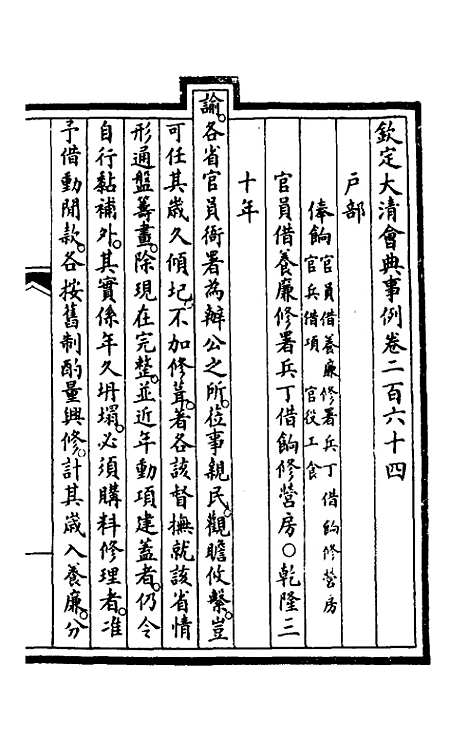 欽定大清會典事例卷二百六十四
戶部
俸餉官員借養廉修署兵丁借餉修營房
官兵借項　官役工食
官員借養廉修署兵丁借餉修營房○乾隆三
十年
諭。各省官員衙署為辦公之所。莅事親民。觀瞻攸繫。豈
可任其歲久傾圮。不加修葺。著各該督撫就該省情
形通盤籌畫。除現在完整。並近年動項建蓋者。仍令
自行黏補外。其實係年久坍塌。必須購料修理者。准
予借動閒款。各按舊制酌量興修。計其歲入養廉。分